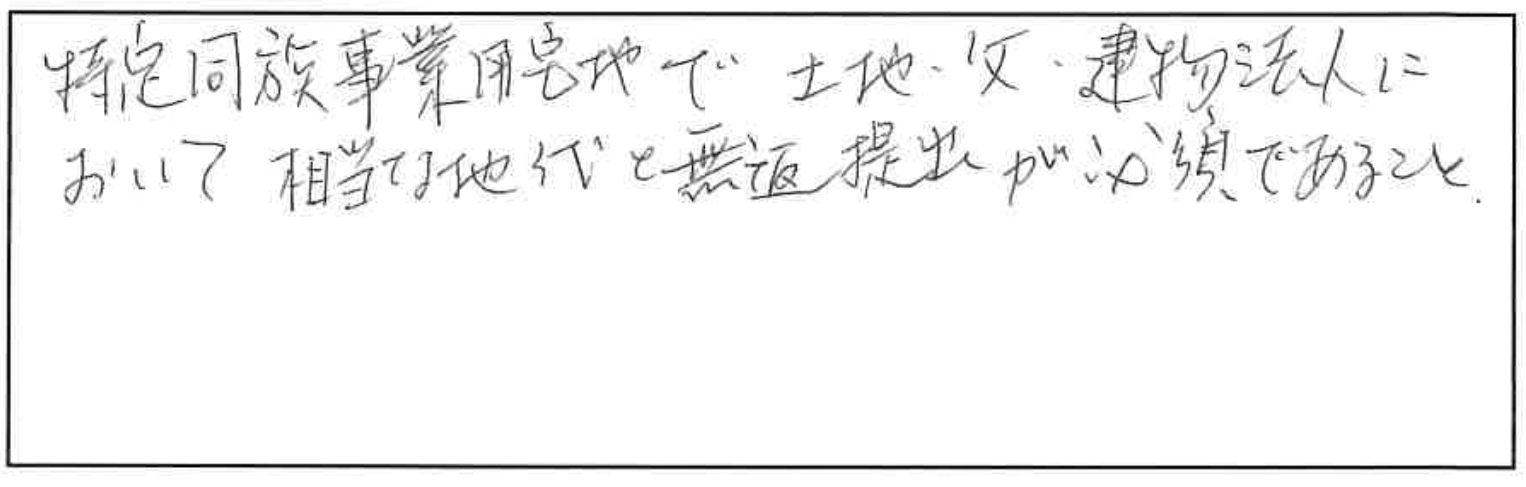 特定同族事業用宅地で 土地・父・建物法人に
おいて 相当な地代と無返提出が必須であること.